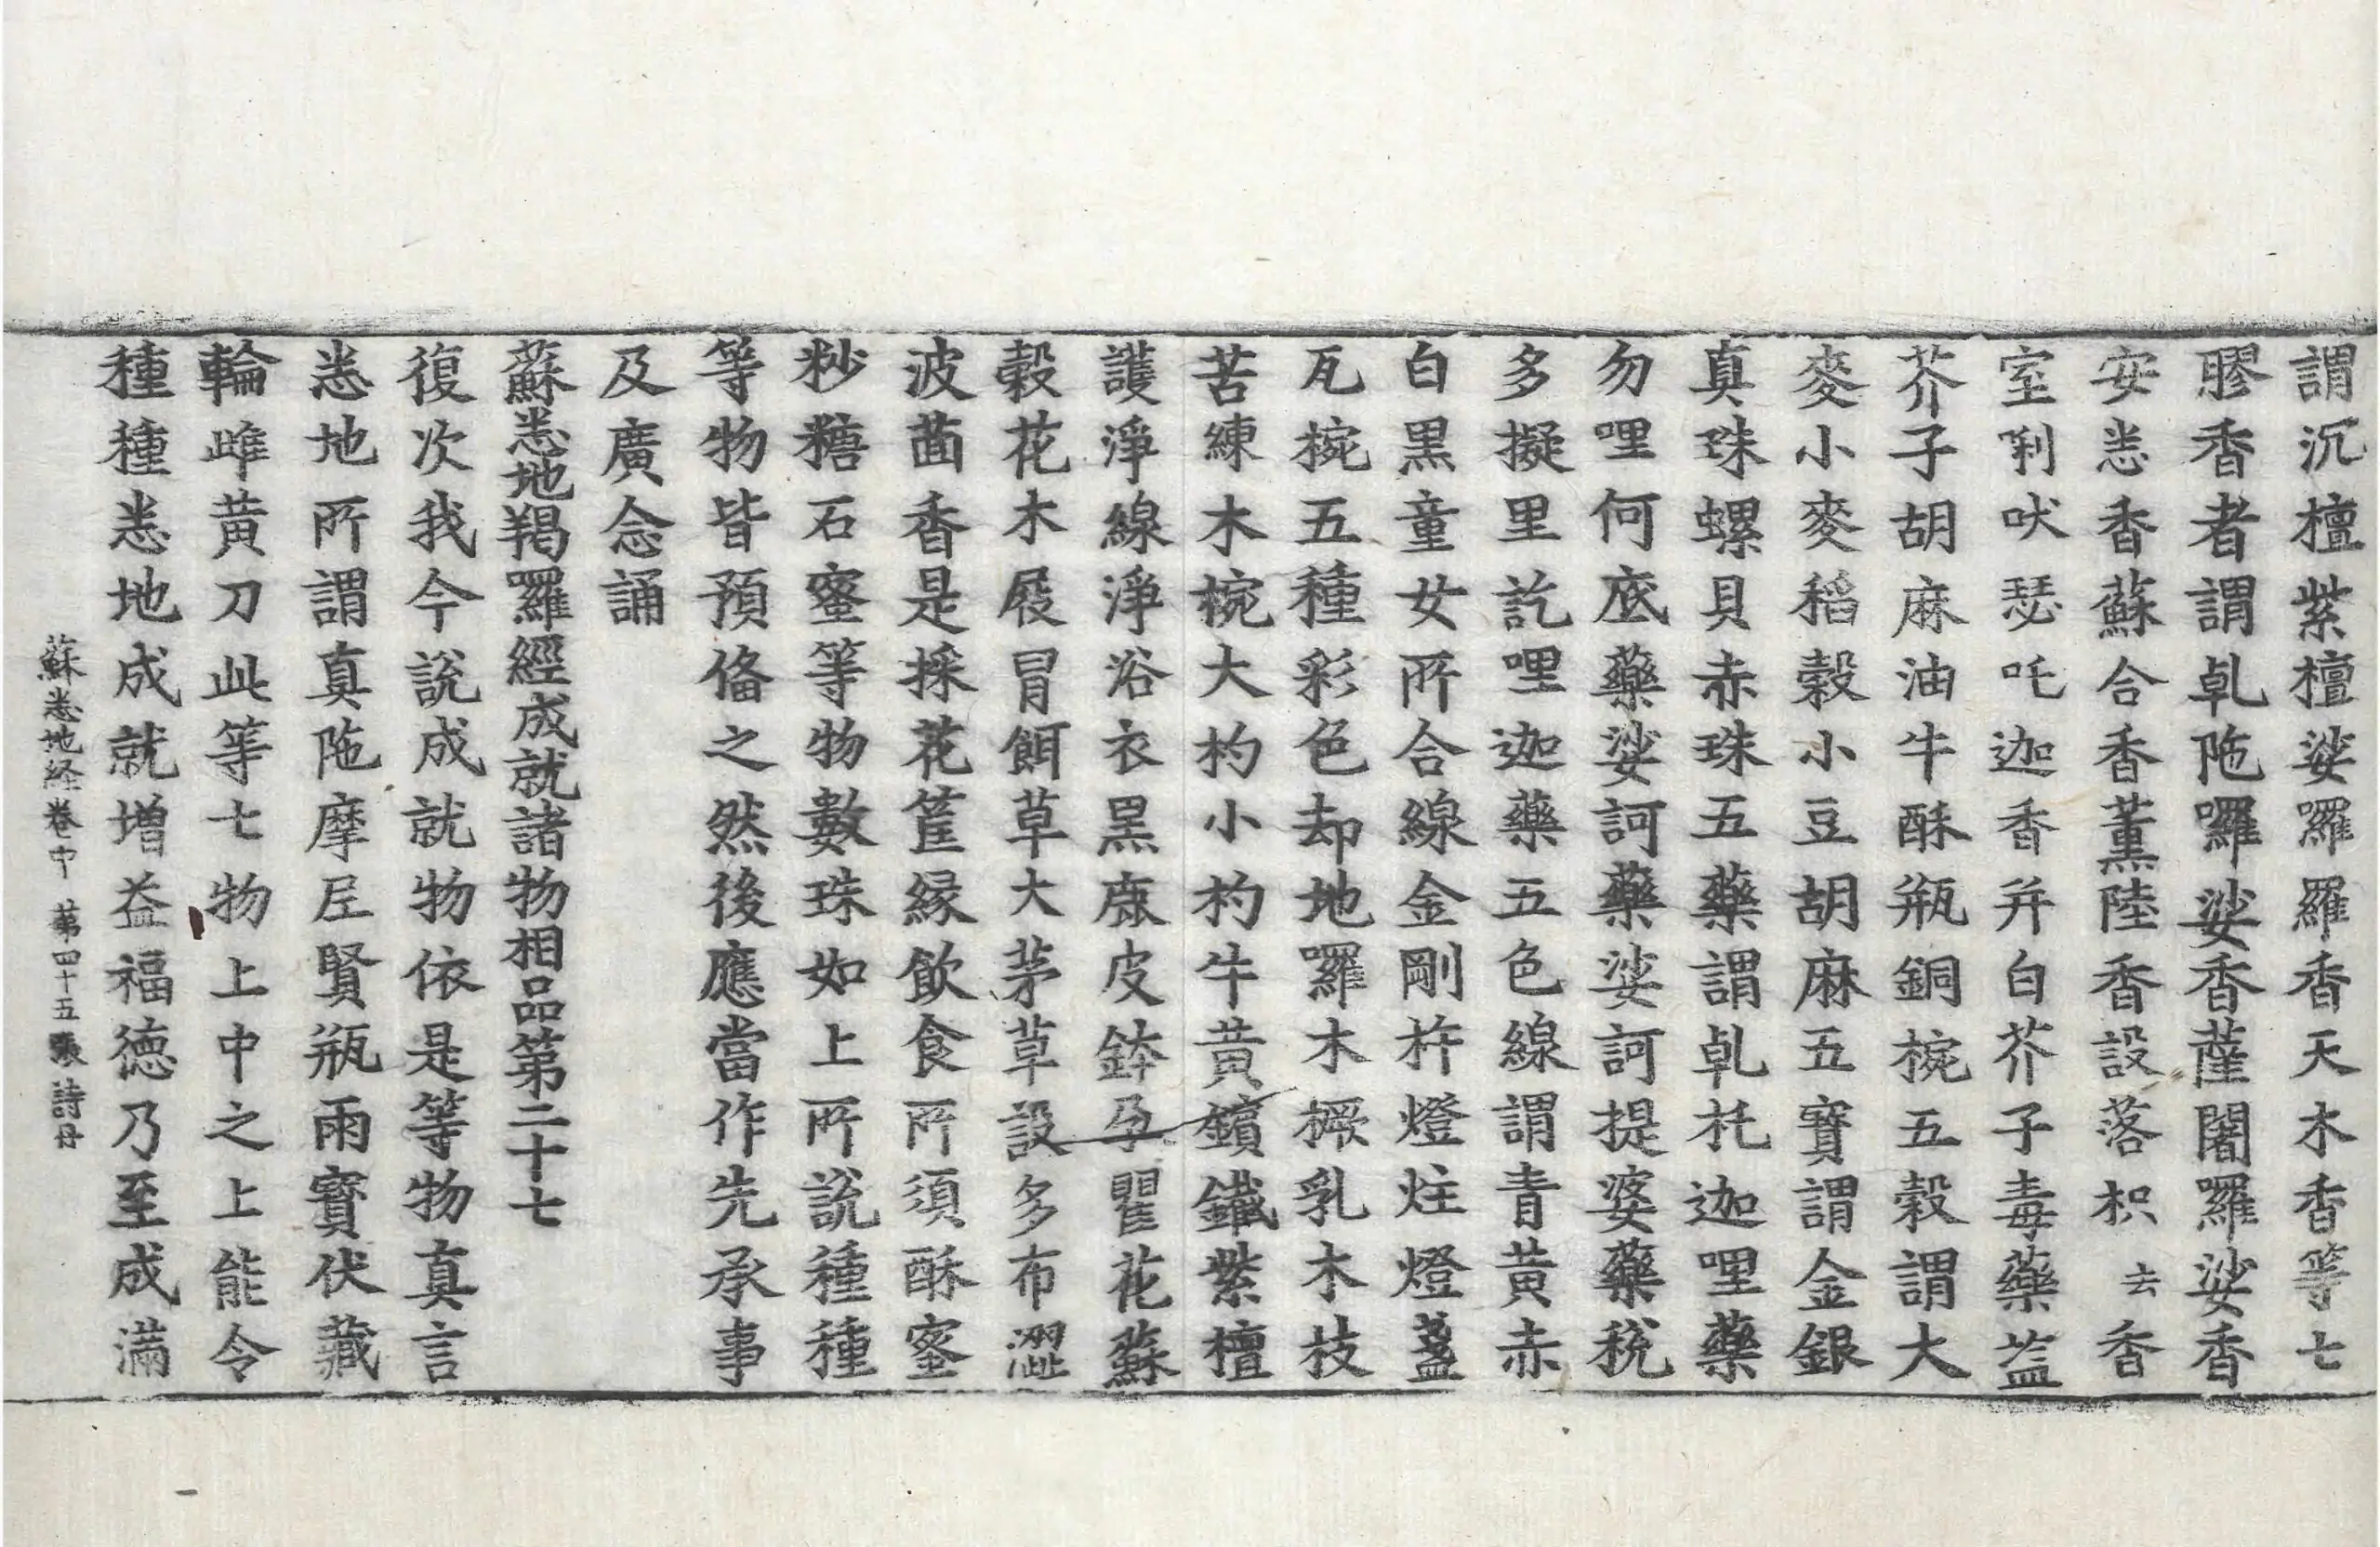 謂沉檀紫檀娑囉羅香天木香等七
膠香者謂乹陁囉娑香薩闍羅娑香
安悉香蘇合香薰陸香設落枳去香
室唎吠瑟吒迦香并白芥子毒藥葢
芥子胡麻油牛酥瓶銅椀五穀謂大
麥小麥稻穀小豆胡麻五寶謂金銀
真珠螺貝赤珠五藥謂乹托迦哩藥
勿哩何底藥娑訶藥娑訶提婆藥稅
多擬里訖哩迦藥五色線謂青黃赤
白黒童女所合線金剛杵燈炷燈盞
瓦椀五種彩色却地囉木橛乳木枝
苦練木椀大杓小杓牛黃鑌鐵紫檀
護淨線淨浴衣黒鹿皮鉢孕瞿花蘇
穀花木屐冒餌草大茅草設多布澀
波茴香是採花筐緣飲食所須酥蜜
粆糖石蜜等物數珠如上所說種種
等物皆預俻之然後應當作先承事
及廣念誦
蘇悉地羯羅經成就諸物相品第二十七
復次我今說成就物依是等物真言
悉地所謂真陁摩尼賢瓶雨寶伏藏
輪雌黃刀此等七物上中之上能令
種種悉地成就增益福德乃至成滿
蘇悉地経卷中 苐四十五張 詩号